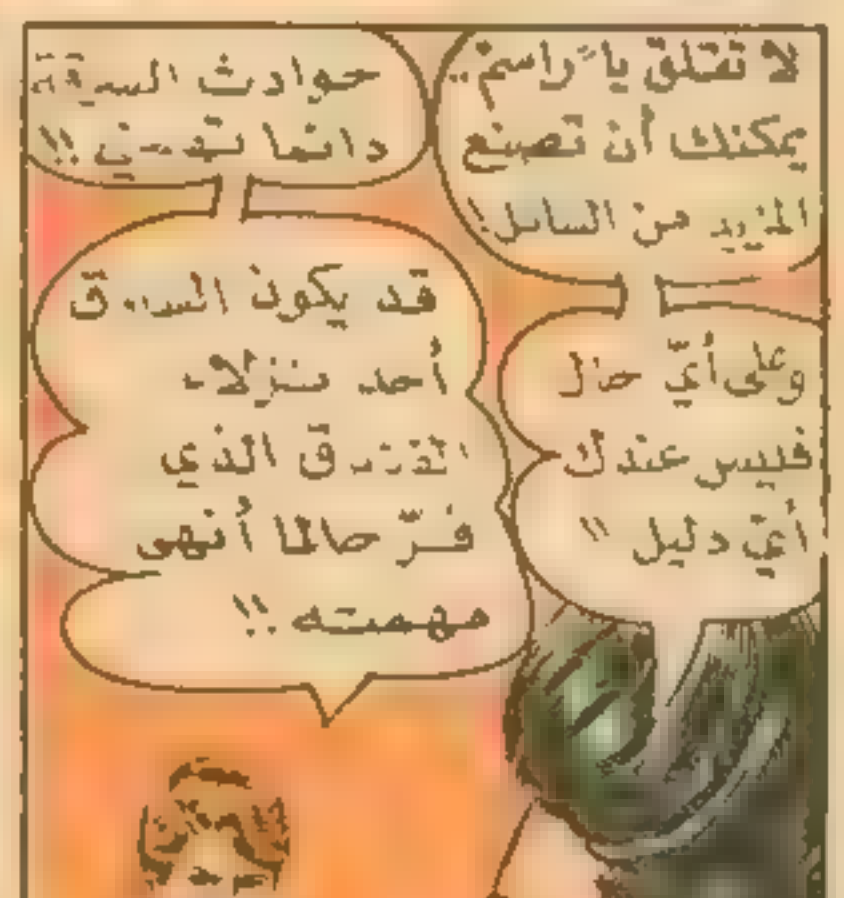 لا تقلق يا "راسم"..
يمكنك أن تصنع
المزيد من السائل!
وعلى أيّ حال
فليس عندك
أيّ دليل !!
حوادث السرقة
دائما !!
قد يكون السارق
أحد نزلاء
الفندق الذي
فرّ حالما أنهى
مهمته !!